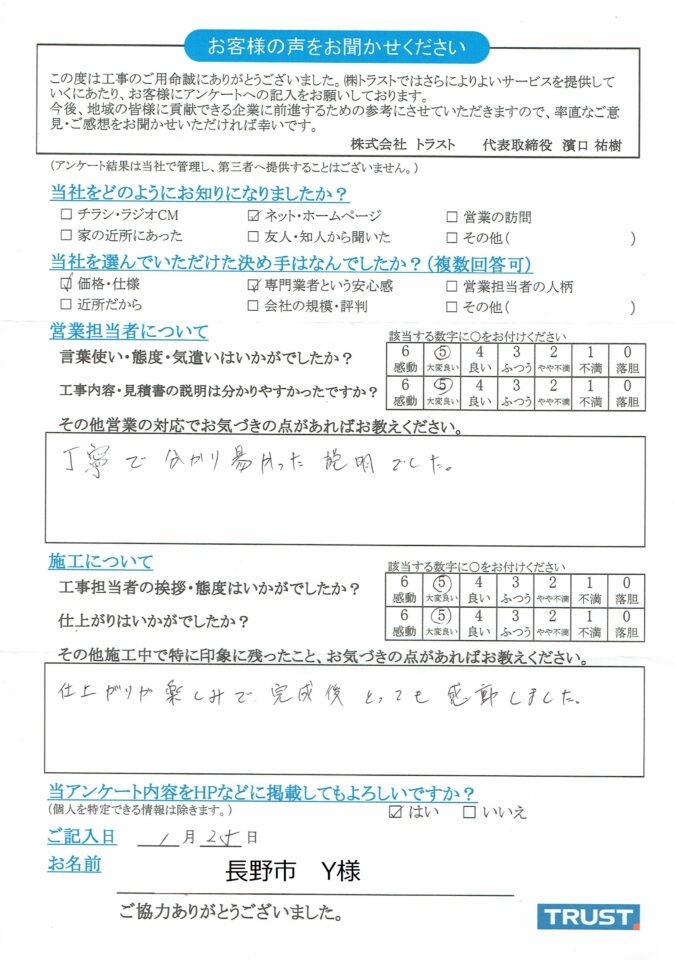 お客様の声をお聞かせください
この度は工事のご用命誠にありがとうございました。㈱トラストではさらによりよいサービスを提供して
いくにあたり、お客様にアンケートへの記入をお願いしております。
今後、地域の皆様に貢献できる企業に前進するための参考にさせていただきますので、率直なご意
見・ご感想をお聞かせいただければ幸いです。
株式会社 トラスト 代表取締役 濱口 祐樹
(アンケート結果は当社で管理し、第三者へ提供することはございません。)
当社をどのようにお知りになりましたか?
□ チラシ・ラジオCM ☑ ネット・ホームページ □ 営業の訪問
□ 家の近所にあった □ 友人・知人から聞いた □ その他( )
当社を選んでいただけた決め手はなんでしたか?(複数回答可)
☑ 価格・仕様 ☑ 専門業者という安心感 □ 営業担当者の人柄
□ 近所だから □ 会社の規模・評判 □ その他( )
営業担当者について 該当する数字に○をお付けください
言葉使い・態度・気遣いはいかがでしたか? 6 ⑤ 4 3 2 1 0
感動 大変良い 良い ふつう やや不満 不満 落胆
工事内容・見積書の説明は分かりやすかったですか? 6 ⑤ 4 3 2 1 0
感動 大変良い 良い ふつう やや不満 不満 落胆
その他営業の対応でお気づきの点があればお教えください。
丁寧で分かり易かった説明でした。
施工について 該当する数字に○をお付けください
工事担当者の挨拶・態度はいかがでしたか? 6 ⑤ 4 3 2 1 0
感動 大変良い 良い ふつう やや不満 不満 落胆
仕上がりはいかがでしたか? 6 ⑤ 4 3 2 1 0
感動 大変良い 良い ふつう やや不満 不満 落胆
その他施工中で特に印象に残ったこと、お気づきの点があればお教えください。
仕上がりが楽しみで、完成後とっても感動しました。
当アンケート内容をHPなどに掲載してもよろしいですか?
(個人を特定できる情報は除きます。) ☑ はい □ いいえ
ご記入日 1月25日
お名前 長野市 Y様
ご協力ありがとうございました。
TRUST.